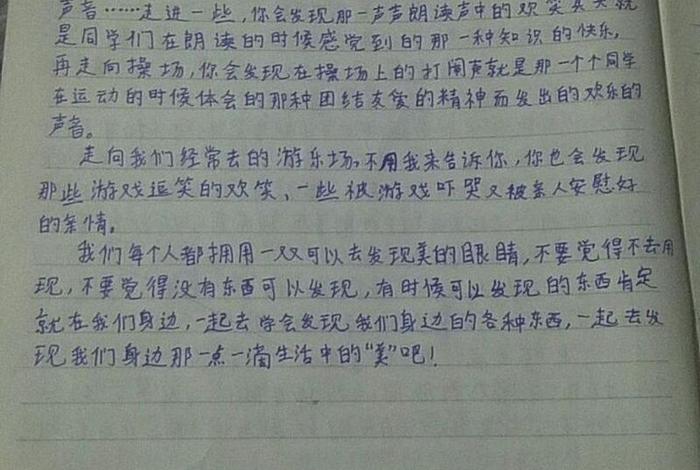 声音……走进一些，你会发现那一声声朗读声中的欢笑其实就
是同学们在朗读的时候感觉到的那一种知识的快乐，
再走向操场，你会发现在操场上的打闹声就是那一个个同学
在运动的时候体会的那种团结友爱的精神而发出的欢乐的
声音。
走向我们经常去的游乐场，不用我来告诉你，你也会发现
那些游戏逗笑的欢笑、一些被游戏吓哭又被亲人安慰好
的亲情。
我们每个人都拥用一双可以去发现美的眼睛，不要觉得不去用
现，不要觉得没有东西可以发现，有时候可以发现的东西肯定
就在我们身边，一起去学会发现我们身边的各种东西，一起去发
现我们身边那一点一滴生活中的“美”吧！